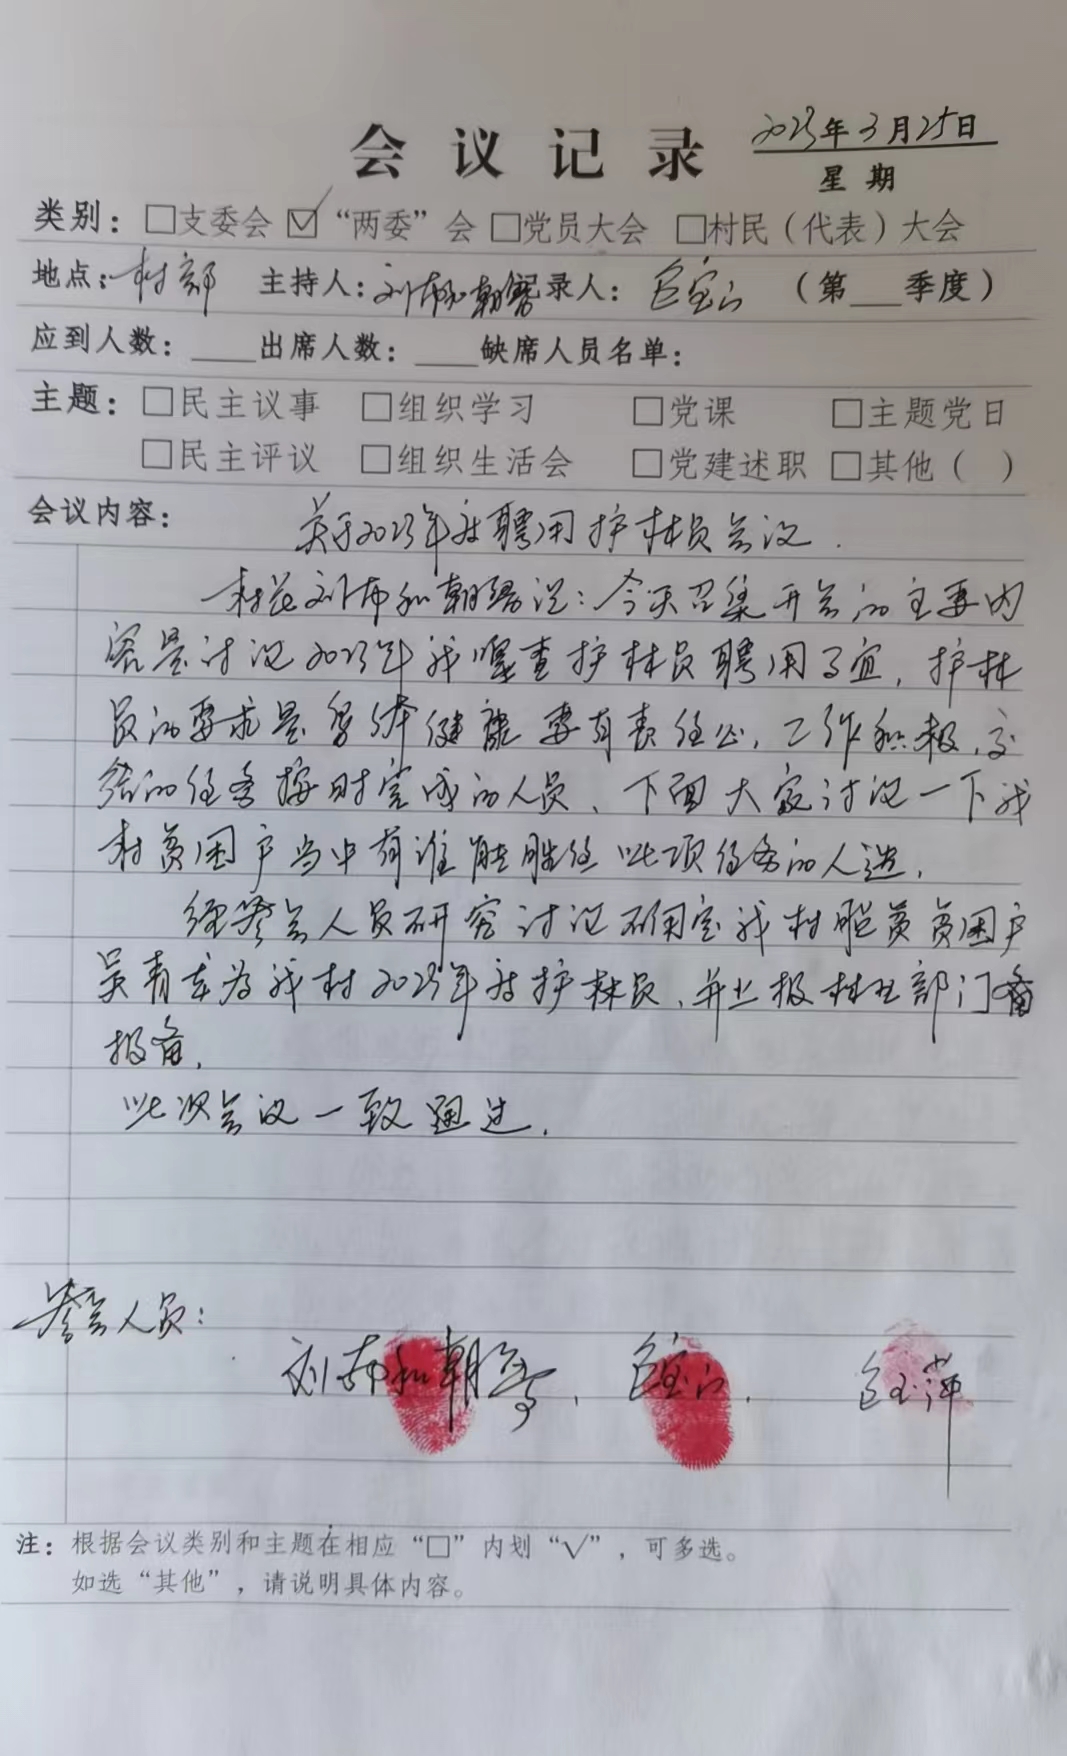 会议记录 2023年3月25日
星期
类别：□支委会 ☑“两委”会 □党员大会 □村民（代表）大会
地点：村部 主持人：刘布和朝鲁 记录人：包宝山 （第__季度）
应到人数：____出席人数：____缺席人员名单：
主题：□民主议事 □组织学习 □党课 □主题党日
□民主评议 □组织生活会 □党建述职 □其他（ ）
会议内容： 关于2023年度聘用护林员会议．
村总刘布和朝鲁说：今天召集开会的主要内
容是讨论2023年我嘎查护林员聘用事宜，护林
员的要求是身体健康 要有责任心，工作积极，交
给的任务按时完成的人员、下面大家讨论一下我
村贫困户当中有谁能胜任此项任务的人选，
经参会人员研究讨论确定我村脱贫贫困户
吴青龙为我村2023年度护林员，并上报林业部门
报备．
此次会议一致通过．
参会人员：
刘布和朝鲁、包宝山． 包玉萍
注：根据会议类别和主题在相应“□”内划“√”，可多选。
如选“其他”，请说明具体内容。